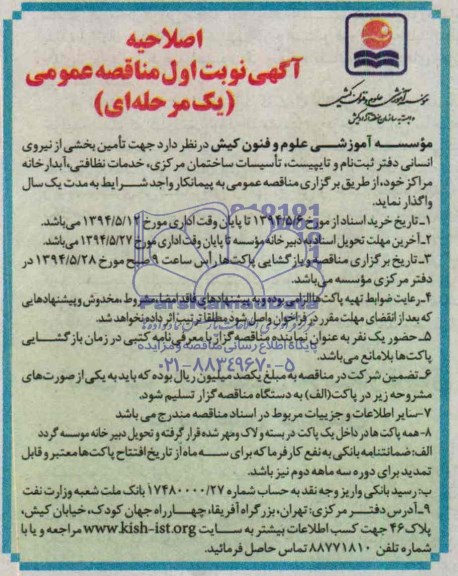 اصلاحیه
آگهی نوبت اول مناقصه عمومی
(یک مرحله‌ای)
مؤسسه آموزشی علوم و فنون کیش در نظر دارد جهت تأمین بخشی از نیروی
انسانی دفتر ثبت‌نام و تایپیست، تأسیسات ساختمان مرکزی، خدمات نظافتی، آبدارخانه
مراکز خود، از طریق برگزاری مناقصه عمومی به پیمانکار واجد شرایط به مدت یک سال
واگذار نماید.
۱ـ تاریخ خرید اسناد از مورخ ۱۳۹۴/۵/۶ تا پایان وقت اداری مورخ ۱۳۹۴/۵/۱۲ می‌باشد.
۲ـ آخرین مهلت تحویل اسناد به دبیرخانه مؤسسه تا پایان وقت اداری مورخ ۱۳۹۴/۵/۲۷ می‌باشد.
۳ـ تاریخ برگزاری مناقصه و بازگشایی پاکت‌ها رأس ساعت ۹ صبح مورخ ۱۳۹۴/۵/۲۸ در
دفتر مرکزی مؤسسه می‌باشد.
۴ـ رعایت ضوابط تهیه پاکت‌ها الزامی بوده و به پیشنهادهای فاقد امضا، مشروط، مخدوش و پیشنهادهایی
که بعد از انقضای مهلت مقرر در فراخوان واصل شود مطلقا ترتیب اثر داده نخواهد شد.
۵ـ حضور یک نفر به عنوان نماینده مناقصه گزار با معرفی نامه کتبی در زمان بازگشایی
پاکت‌ها بلامانع می‌باشد.
پایگاه اطلاع رسانی مناقصه و مزایده
۰۲۱-۸۸۳۴۹۶۷۰-۵
۶ـ تضمین شرکت در مناقصه به مبلغ یکصد میلیون ریال بوده که باید به یکی از صورت‌های
مشروحه زیر در پاکت(الف) به دستگاه مناقصه گزار تسلیم شود.
۷ـ سایر اطلاعات و جزییات مربوط در اسناد مناقصه مندرج می باشد
۸- همه پاکت ها در داخل یک پاکت در بسته و لاک و مهر شده قرار گرفته و تحویل دبیر خانه موسسه گردد
الف: ضمانتنامه بانکی به نفع کارفرما که برای سه ماه از تاریخ افتتاح پاکت‌ها معتبر و قابل
تمدید برای دوره سه ماهه دوم نیز باشد.
ب: رسید بانکی واریز وجه نقد به حساب شماره ۱۷۴۸۰۰۰۰/۲۷ بانک ملت شعبه وزارت نفت
۹ـ آدرس دفتر مرکزی: تهران، بزرگراه آفریقا، چهارراه جهان کودک، خیابان کیش،
پلاک ۴۶ جهت کسب اطلاعات بیشتر به سایت www.kish-ist.org مراجعه و یا با
شماره تلفن ۸۸۷۷۱۸۱۰ تماس حاصل فرمائید.